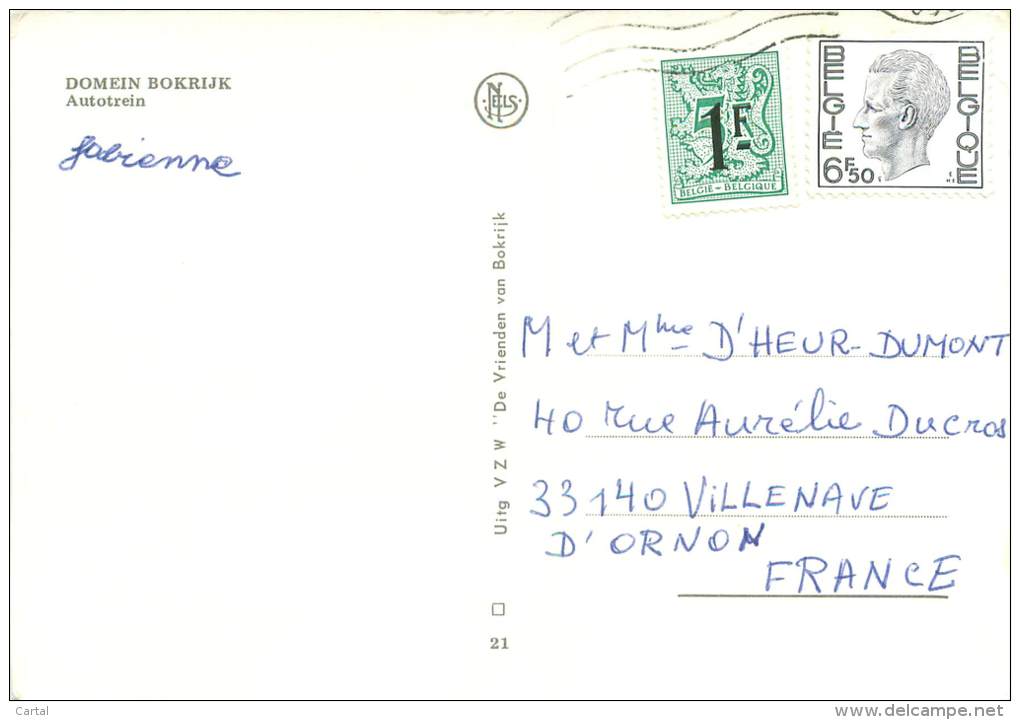 DOMEIN BOKRIJK
Autotrein
fabienne
NELS
1F
BELGIË - BELGIQUE
BELGIË
BELGIQUE
6F50
Uitg V Z W "De Vrienden van Bokrijk
M et Mme D'HEUR-DUMONT
40 rue Aurélie Ducros
33140 ViLLENAVE
D'ORNON
FRANCE
21
Cartal
delcampe.net